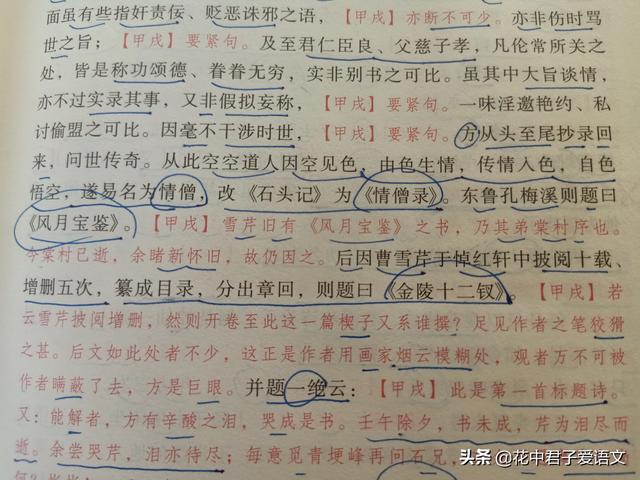 面虽有些指奸责佞、贬恶诛邪之语，【甲戌】亦断不可少。亦非伤时骂
世之旨；【甲戌】要紧句。及至君仁臣良、父慈子孝，凡伦常所关之
处，皆是称功颂德、眷眷无穷，实非别书之可比。虽其中大旨谈情，
亦不过实录其事，又非假拟妄称，【甲戌】要紧句。一味淫邀艳约、私
讨偷盟之可比。因毫不干涉时世，【甲戌】要紧句。方从头至尾抄录回
来，问世传奇。从此空空道人因空见色，由色生情，传情入色，自色
悟空，遂易名为情僧，改《石头记》为《情僧录》。东鲁孔梅溪则题曰
《风月宝鉴》。【甲戌】雪芹旧有《风月宝鉴》之书，乃其弟棠村序也。
今棠村已逝，余睹新怀旧，故仍因之。后因曹雪芹于悼红轩中披阅十载、
增删五次，纂成目录，分出章回，则题曰《金陵十二钗》。【甲戌】若
云雪芹披阅增删，然则开卷至此这一篇楔子又系谁撰？足见作者之笔狡猾
之甚。后文如此处者不少，这正是作者用画家烟云模糊处，观者万不可被
作者瞒蔽了去，方是巨眼。并题一绝云：【甲戌】此是第一首标题诗。
又：能解者，方有辛酸之泪，哭成是书。壬午除夕，书未成，芹为泪尽而
逝。余尝哭芹，泪亦待尽；每意觅青埂峰再问石兄，
头条 @花中君子爱语文